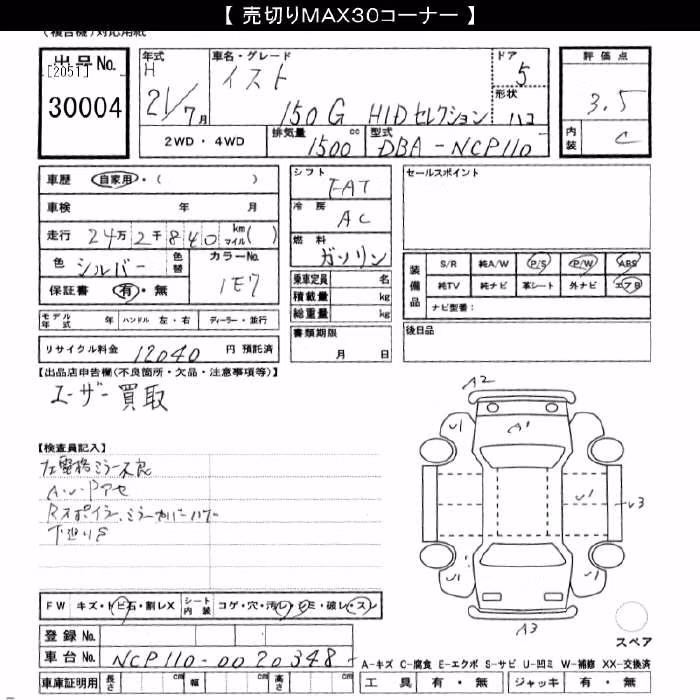 【 売切りMAX30コーナー 】
(複合機)対応用紙
出品No. [2051] 30004
年式 H 21/7月
車名・グレード イスト 150G HIDセレクション
ドア 5
形状 ハコ
評価点 3.5
内装 C
2WD・4WD
排気量 1500 cc
型式 DBA-NCP110
車歴 自家用・( )
車検 年 月
走行 24万2千840 km マイル( )
色 シルバー 色替 カラーNo. 1E7
保証書 有・無
モデル年式 年 ハンドル 左・右 ディーラー・並行
リサイクル料金 12040 円 預託済
シフト FAT
冷房 AC
燃料 ガソリン
乗車定員 名
積載量 kg
総重量 kg
書類期限 月 日
セールスポイント
装備品 S/R 純A/W P/S P/W ABS
純TV 純ナビ 革シート 外ナビ エアB
ナビ型番:
後日品
【出品店申告欄(不良箇所・欠品・注意事項等)】
ユーザー買取
【検査員記入】
左電格ミラー不良
A・W・Pアセ
Rスポイラ、ミラーカバーハゲ
下廻りS
A2
U1 A1 U1
U1 U3
U1 U1
A3
スペア
FW キズ・トビ石・割レX シート内装 コゲ・穴・汚レ・シミ・破レ・スレ
登録No.
車台No. NCP110-0020348
車庫証明用 長さ cm 幅 cm 高さ cm
A-キズ C-腐食 E-エクボ S-サビ U-凹ミ W-補修 XX-交換済
工具 有・無 ジャッキ 有・無